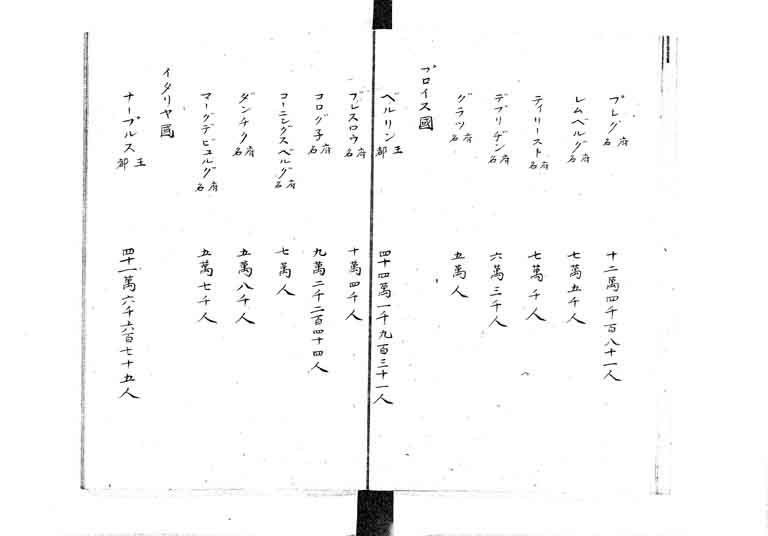 プレグ府名 十二萬四千百八十一人
レムベルグ府名 七萬五千人
ティリースト府名 七萬千人
デブリヂン府名 六萬三千人
グラツ府名 五萬人
プロイス國
ベルリン王都 四十四萬一千九百三十一人
ブレスロウ府名 十萬四千人
コログ子府名 九萬二千二百四十四人
コーニングスベルグ府名 七萬人
ダンチク府名 五萬八千人
マーグデビュルグ府名 五萬七千人
イタリヤ國
ナープルス王都 四十一萬六千六百七十五人